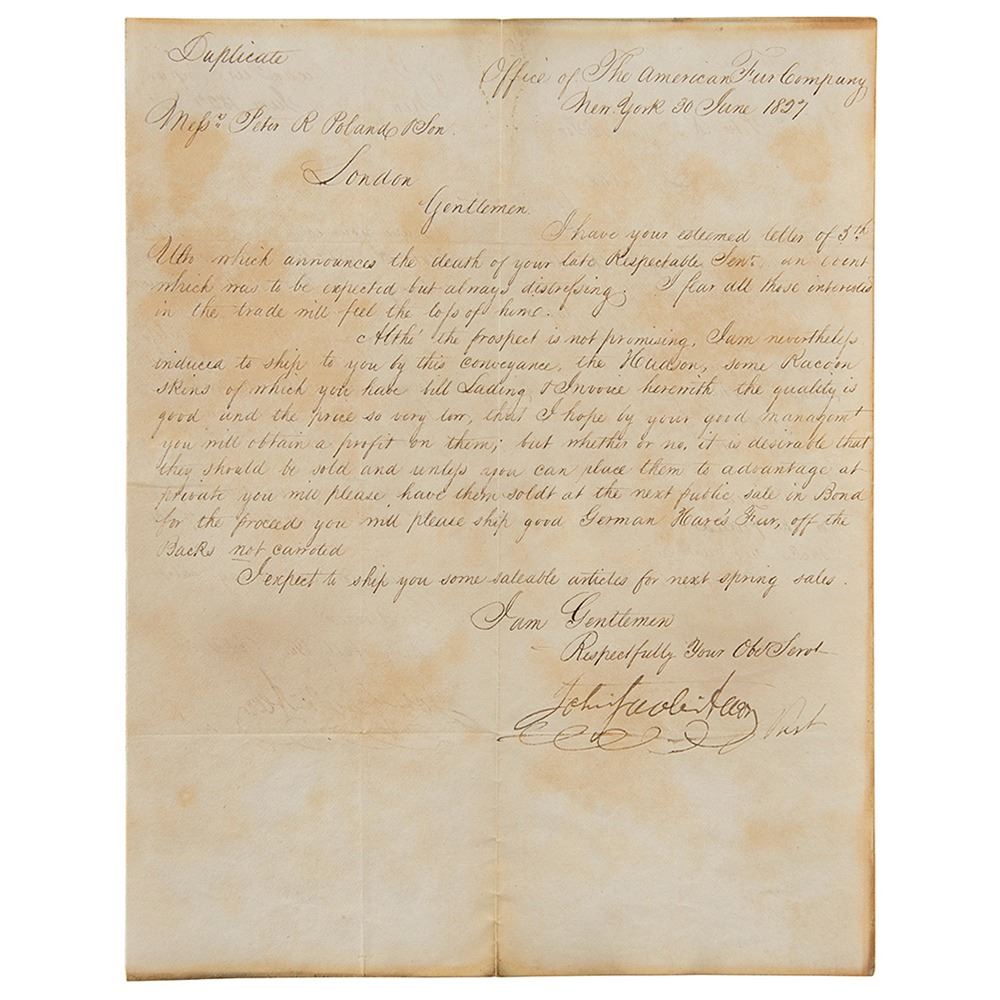 Duplicate
Office of The American Fur Company
New York 30 June 1827
Messrs Peter R Poland & Son.
London
Gentlemen.
I have your esteemed letter of 5th
Ulto which announces the death of your late Respectable Senr, an event
which was to be expected but always distressing. I fear all those interested
in the trade will feel the loss of him.
Altho' the prospect is not promising, I am nevertheless
induced to ship to you by this conveyance, the Hudson, some Racoon
skins of which you have bill Lading & Invoice herewith the quality is
good and the price so very low, that I hope by your good managemt
you will obtain a profit on them; but whether or no, it is desirable that
they should be sold and unless you can place them to advantage at
private you will please have them soldt at the next public sale in Bond
for the proceeds you will please ship good German Hare's Fur, off the
Backs not carroted
I expect to ship you some saleable articles for next spring sales.
I am Gentlemen
Respectfully Your Obt Servt
John Jacob Astor